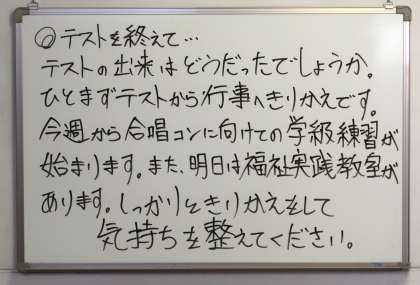 ◎テストを終えて…
テストの出来はどうだったでしょうか。
ひとまずテストから行事へきりかえです。
今週から合唱コンに向けての学級練習が
始まります。また、明日は福祉実践教室が
あります。しっかりときりかえをして
気持ちを整えてください。